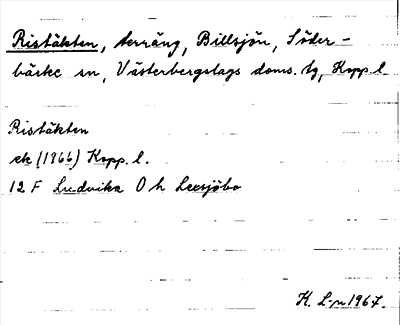 Ristäkten, terräng, Billsjön, Söder-
bärke sn, Västerbergslags doms. tg, Kopp. l.
Ristäkten
ek (1966) Kopp. l.
12 F Ludvika O h Lexsjöbo
K. L-n 1967.